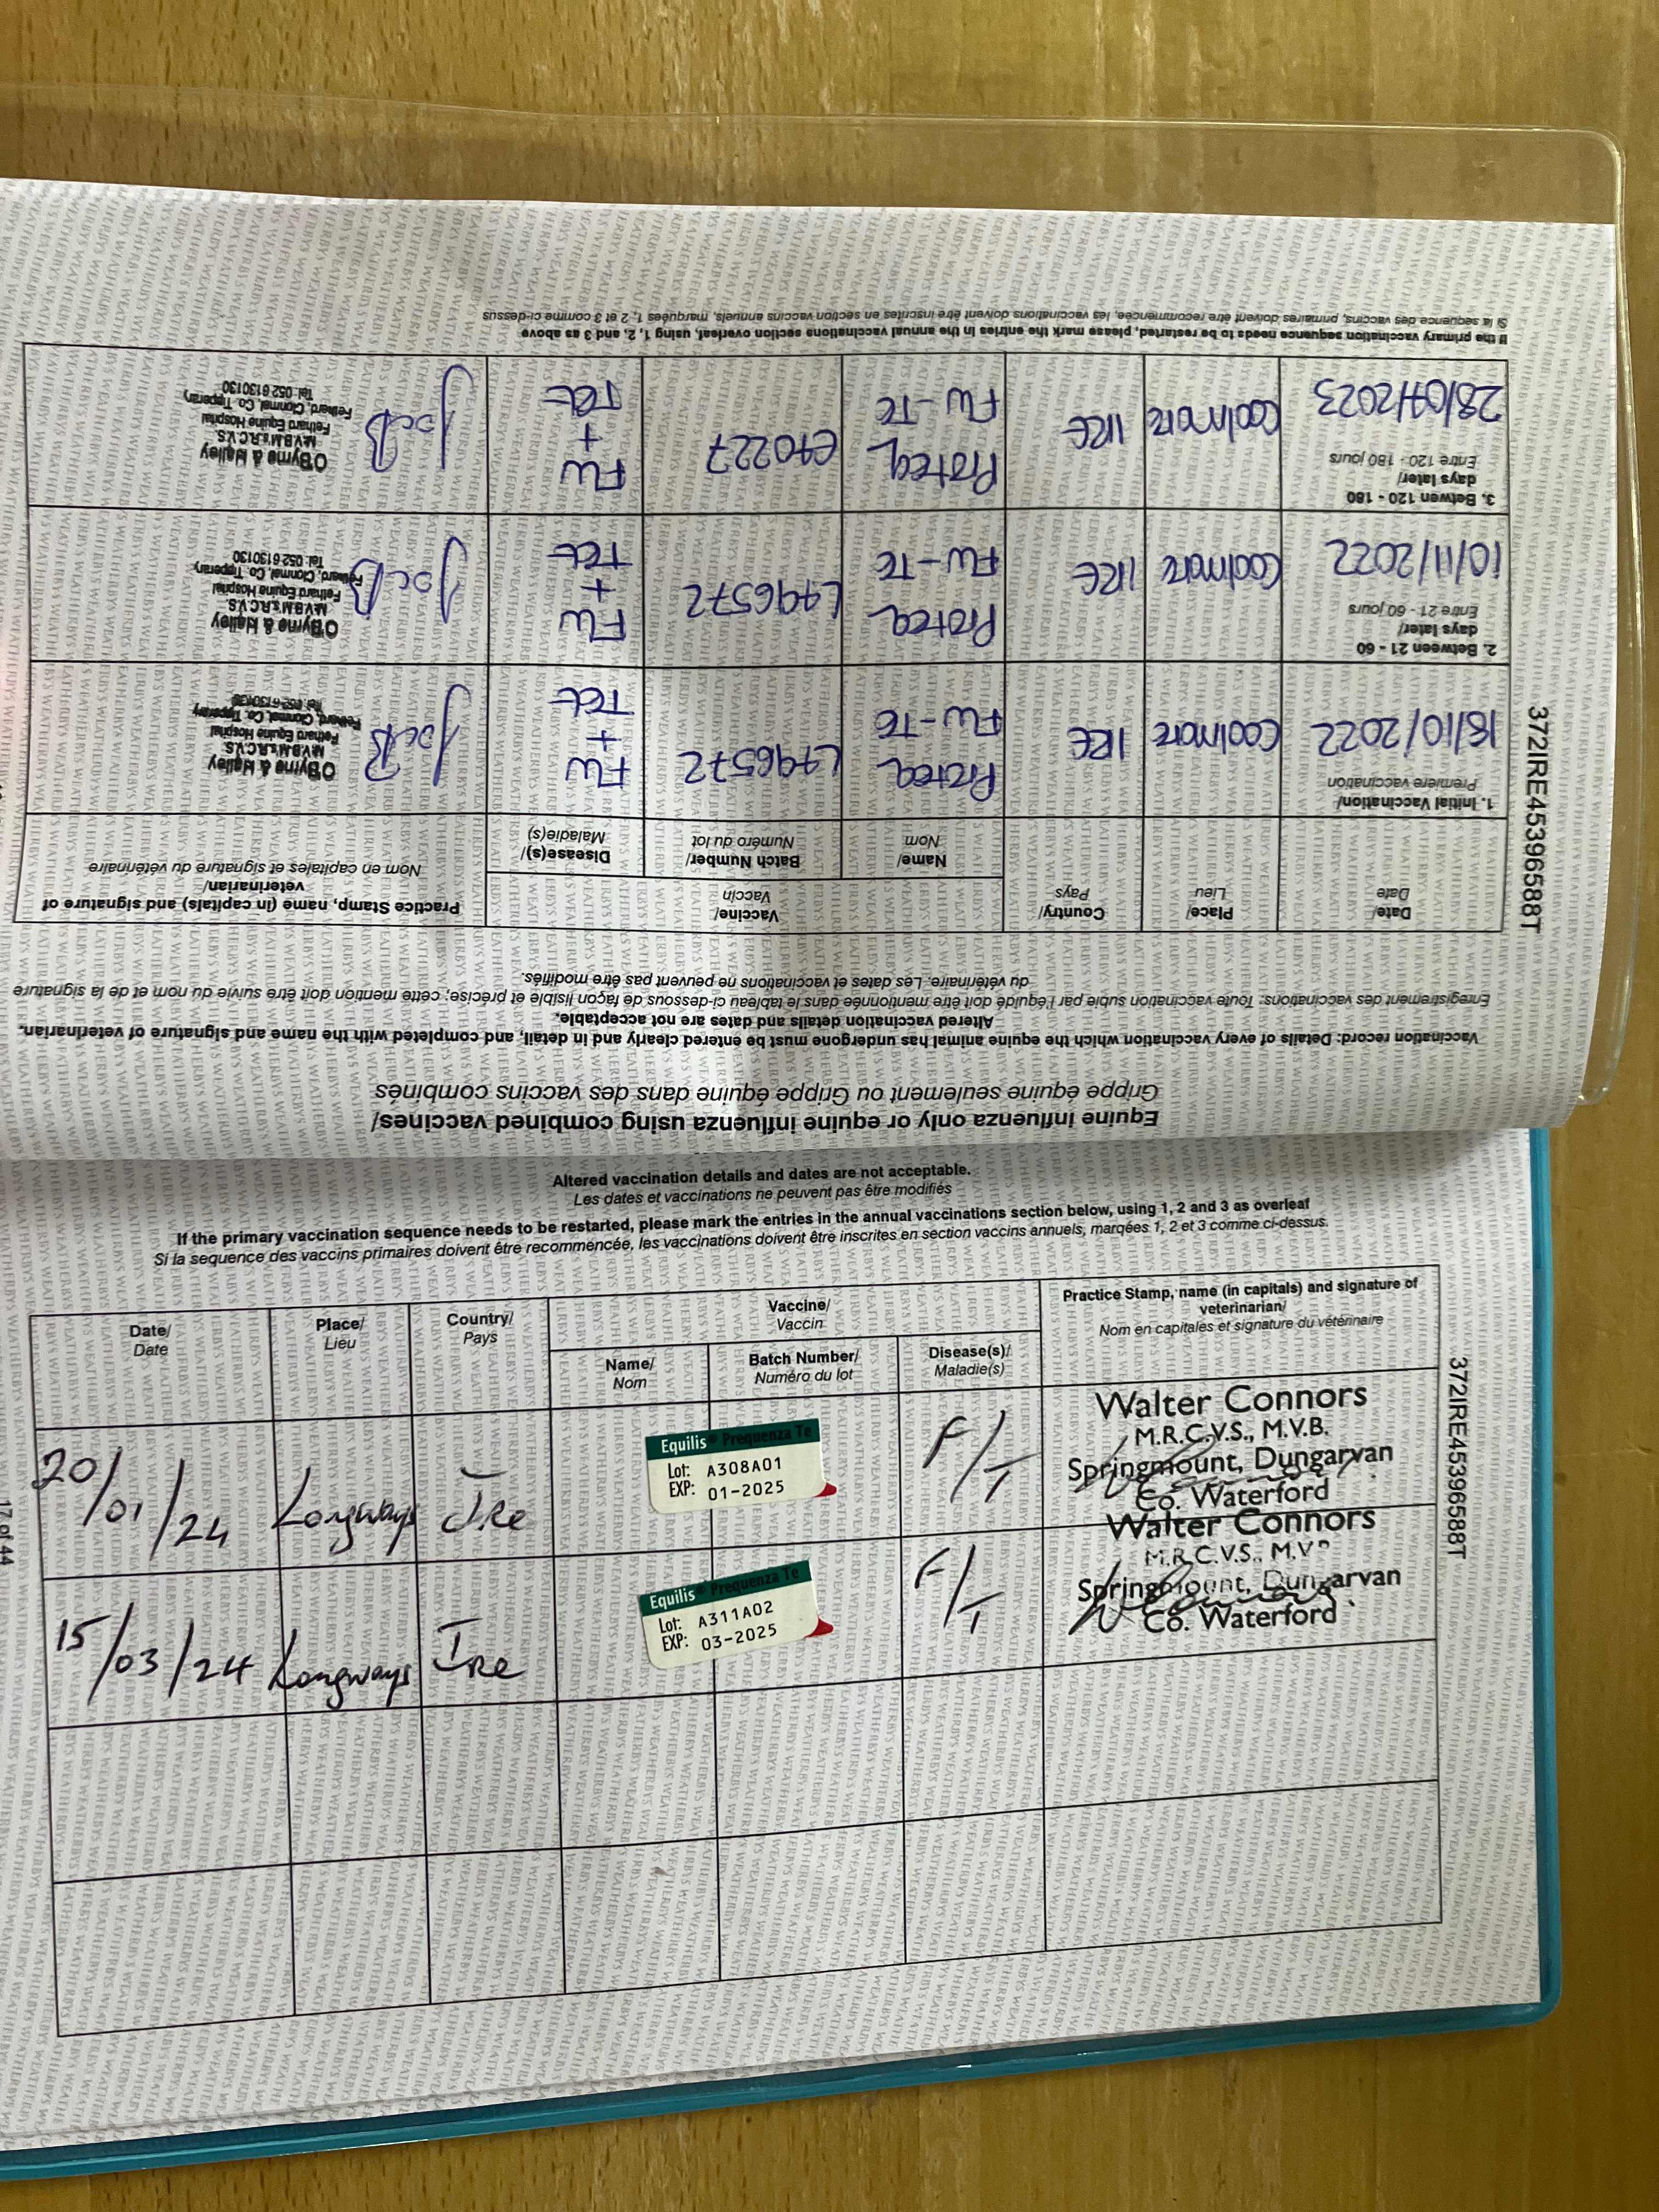 Equine influenza only or equine influenza using combined vaccines/
Grippe équine seulement ou Grippe équine dans des vaccines combinés
Vaccination record: Details of every vaccination which the equine animal has undergone must be entered clearly and in detail, and completed with the name and signature of veterinarian.
Altered vaccination details and dates are not acceptable.
Enregistrement des vaccinations: Toute vaccination subie par l'équidé doit être mentionnée dans le tableau ci-dessous de façon lisible et précise; cette mention doit être suivie du nom et de la signature
du vétérinaire. Les dates et vaccinations ne peuvent pas être modifiés.
Date/
Date
Place/
Lieu
Country/
Pays
Vaccine/
Vaccin
Name/
Nom
Batch Number/
Numéro du lot
Disease(s)/
Maladie(s)
Practice Stamp, name (in capitals) and signature of
veterinarian/
Nom en capitales et signature du vétérinaire
1. Initial Vaccination/
Première vaccination
18/10/2022
Coolmore
IRE
Proteq
Flu-Te
L496572
Flu
+
Tet
O'Byrne & Halley
MVB.M's.R.C.V.S.
Fethard Equine Hospital
Fethard, Clonmel, Co. Tipperary
Tel: 052 6130130
2. Between 21 - 60
days later/
Entre 21 - 60 jours
10/11/2022
Coolmore
IRE
Proteq
Flu-Te
L496572
Flu
+
Tet
O'Byrne & Halley
MVB.M's.R.C.V.S.
Fethard Equine Hospital
Fethard, Clonmel, Co. Tipperary
Tel: 052 6130130
3. Betwen 120 - 180
days later/
Entre 120 - 180 jours
28/04/2023
Coolmore
IRE
Proteq
Flu-Te
E70227
Flu
+
Tet
O'Byrne & Halley
MVB.M's.R.C.V.S.
Fethard Equine Hospital
Fethard, Clonmel, Co. Tipperary
Tel: 052 6130130
If the primary vaccination sequence needs to be restarted, please mark the entries in the annual vaccinations section overleaf, using 1, 2, and 3 as above
Si la séquence des vaccins, primaires doivent être recommencée, les vaccinations doivent être inscrites en section vaccins annuels, marquées 1, 2 et 3 comme ci-dessus
372IRE45396588T
Altered vaccination details and dates are not acceptable.
Les dates et vaccinations ne peuvent pas être modifiés
If the primary vaccination sequence needs to be restarted, please mark the entries in the annual vaccinations section below, using 1, 2 and 3 as overleaf
Si la sequence des vaccins primaires doivent être recommencée, les vaccinations doivent être inscrites en section vaccins annuels, marqées 1, 2 et 3 comme ci-dessus.
Date/
Date
Place/
Lieu
Country/
Pays
Vaccine/
Vaccin
Name/
Nom
Batch Number/
Numéro du lot
Disease(s)/
Maladie(s)
Practice Stamp, name (in capitals) and signature of
veterinarian/
Nom en capitales et signature du vétérinaire
20/01/24
Longways
Ire
Equilis® Prequenza Te
Lot: A308A01
EXP: 01-2025
F/T
Walter Connors
M.R.C.V.S., M.V.B.
Springmount, Dungarvan
Co. Waterford
15/03/24
Longways
Ire
Equilis® Prequenza Te
Lot: A311A02
EXP: 03-2025
F/T
Walter Connors
M.R.C.V.S., M.V
Springmount, Dungarvan
Co. Waterford
372IRE45396588T
17 of 44